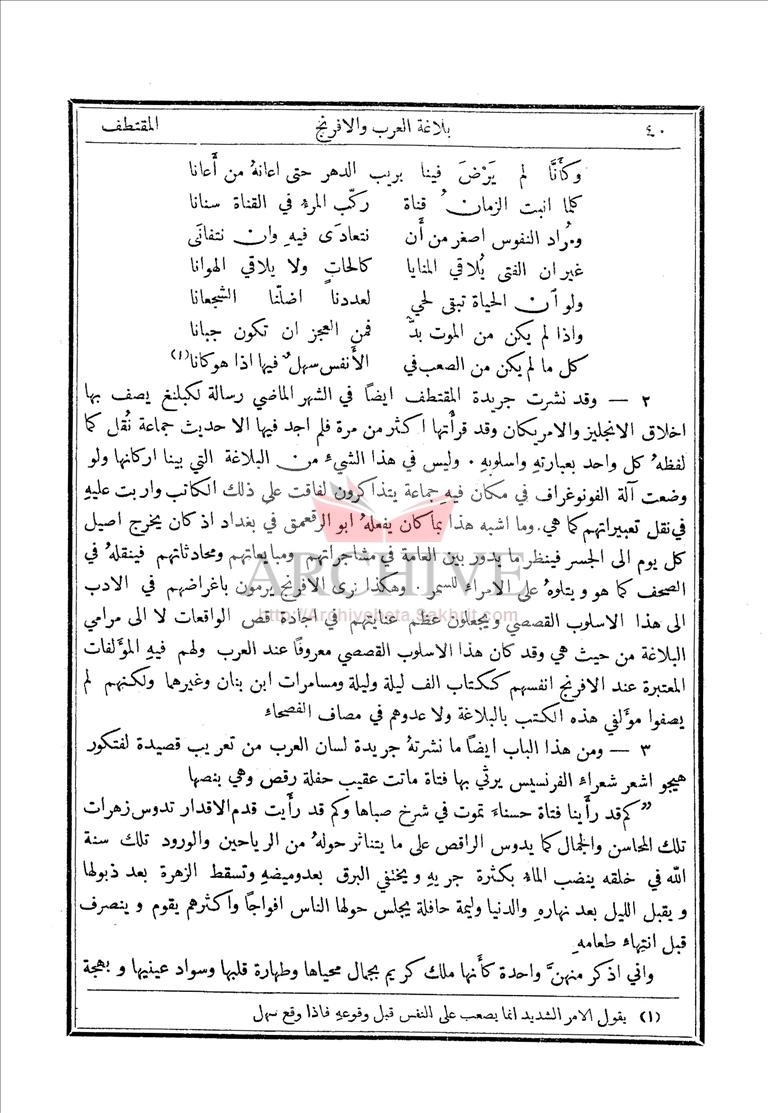 ٤٠ بلاغة العرب والافرنج المقتطف
وكأَنَّا لم يَرْضَ فينا بريب الدهر حتى اعانهُ من أَعانا
كلما انبت الزمانُ قناة ركّب المرءُ في القناة سنانا
ومُراد النفوس اصغر من أَن نتعادَى فيهِ وان نتفانَى
غير ان الفتى يُلاقي المنايا كالحاتٍ ولا يلاقي الهوانا
ولو أن الحياة تبقى لحي لعددنا اضلّنا الشجعانا
واذا لم يكن من الموت بدٌّ فمن العجز ان تكون جبانا
كل ما لم يكن من الصعب في الأَنفس سهلٌ فيها اذا هو كانا(١)
٢ — وقد نشرت جريدة المقتطف ايضاً في الشهر الماضي رسالة لكبلنغ يصف بها
اخلاق الانجليز والامريكان وقد قرأتها اكثر من مرة فلم اجد فيها الا حديث جماعة نُقل كما
لفظهُ كل واحد بعبارتهِ واسلوبهِ . وليس في هذا الشيء من البلاغة التي بينا اركانها ولو
وضعت آلة الفونوغراف في مكان فيهِ جماعة يتذاكرون لفاقت على ذلك الكاتب واربت عليهِ
في نقل تعبيراتهم كما هي. وما اشبه هذا بما كان يفعلهُ ابو الرقعمق في بغداد اذ كان يخرج اصيل
كل يوم الى الجسر فينظر ما يدور بين العامة في مشاجراتهم ومبايعاتهم ومحادثاتهم فينقلهُ في
الصحف كما هو ويتلوهُ على الامراء للسمر وهكذا نرى الافرنج يرمون باغراضهم في الادب
الى هذا الاسلوب القصصي ويجعلون عظم عنايتهم في اجادة قص الواقعات لا الى مرامي
البلاغة من حيث هي وقد كان هذا الاسلوب القصصي معروفاً عند العرب ولهم فيهِ المؤلفات
المعتبرة عند الافرنج انفسهم ككتاب الف ليلة وليلة ومسامرات ابن بنان وغيرها ولكنهم لم
يصفوا مؤلفي هذه الكتب بالبلاغة ولا عدوهم في مصاف الفصحاء
٣ — ومن هذا الباب ايضاً ما نشرتهُ جريدة لسان العرب من تعريب قصيدة لفتكور
هيجو اشعر شعراء الفرنسيس يرثي بها فتاة ماتت عقيب حفلة رقص وهي بنصها
”كم قد رأينا فتاة حسناء تموت في شرخ صباها وكم قد رأيت قدم الاقدار تدوس زهرات
تلك المحاسن والجمال كما يدوس الراقص على ما يتناثر حولهُ من الرياحين والورود تلك سنة
الله في خلقه ينضب الماء بكثرة جريهِ ويختفي البرق بعد وميضهِ وتسقط الزهرة بعد ذبولها
ويقبل الليل بعد نهارهِ والدنيا وليمة حافلة يجلس حولها الناس افواجاً واكثرهم يقوم وينصرف
قبل انتهاء طعامهِ
واني اذكر منهنَّ واحدة كأنها ملك كريم بجمال محياها وطهارة قلبها وسواد عينيها وبهجة
(١) يقول الامر الشديد انما يصعب على النفس قبل وقوعهِ فاذا وقع سهل
ARCHIVE
http://Archivebeta.Sakhrit.com